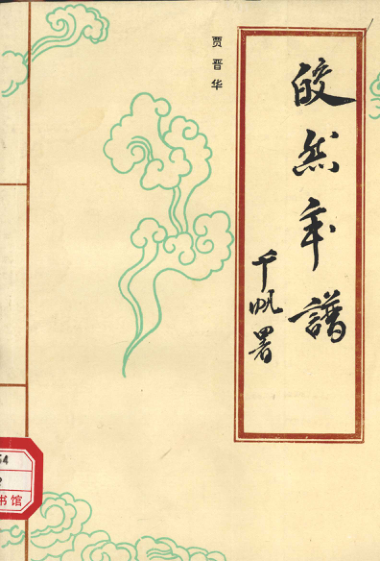 皎然年谱
千帆署
贾晋华
54
2
书馆